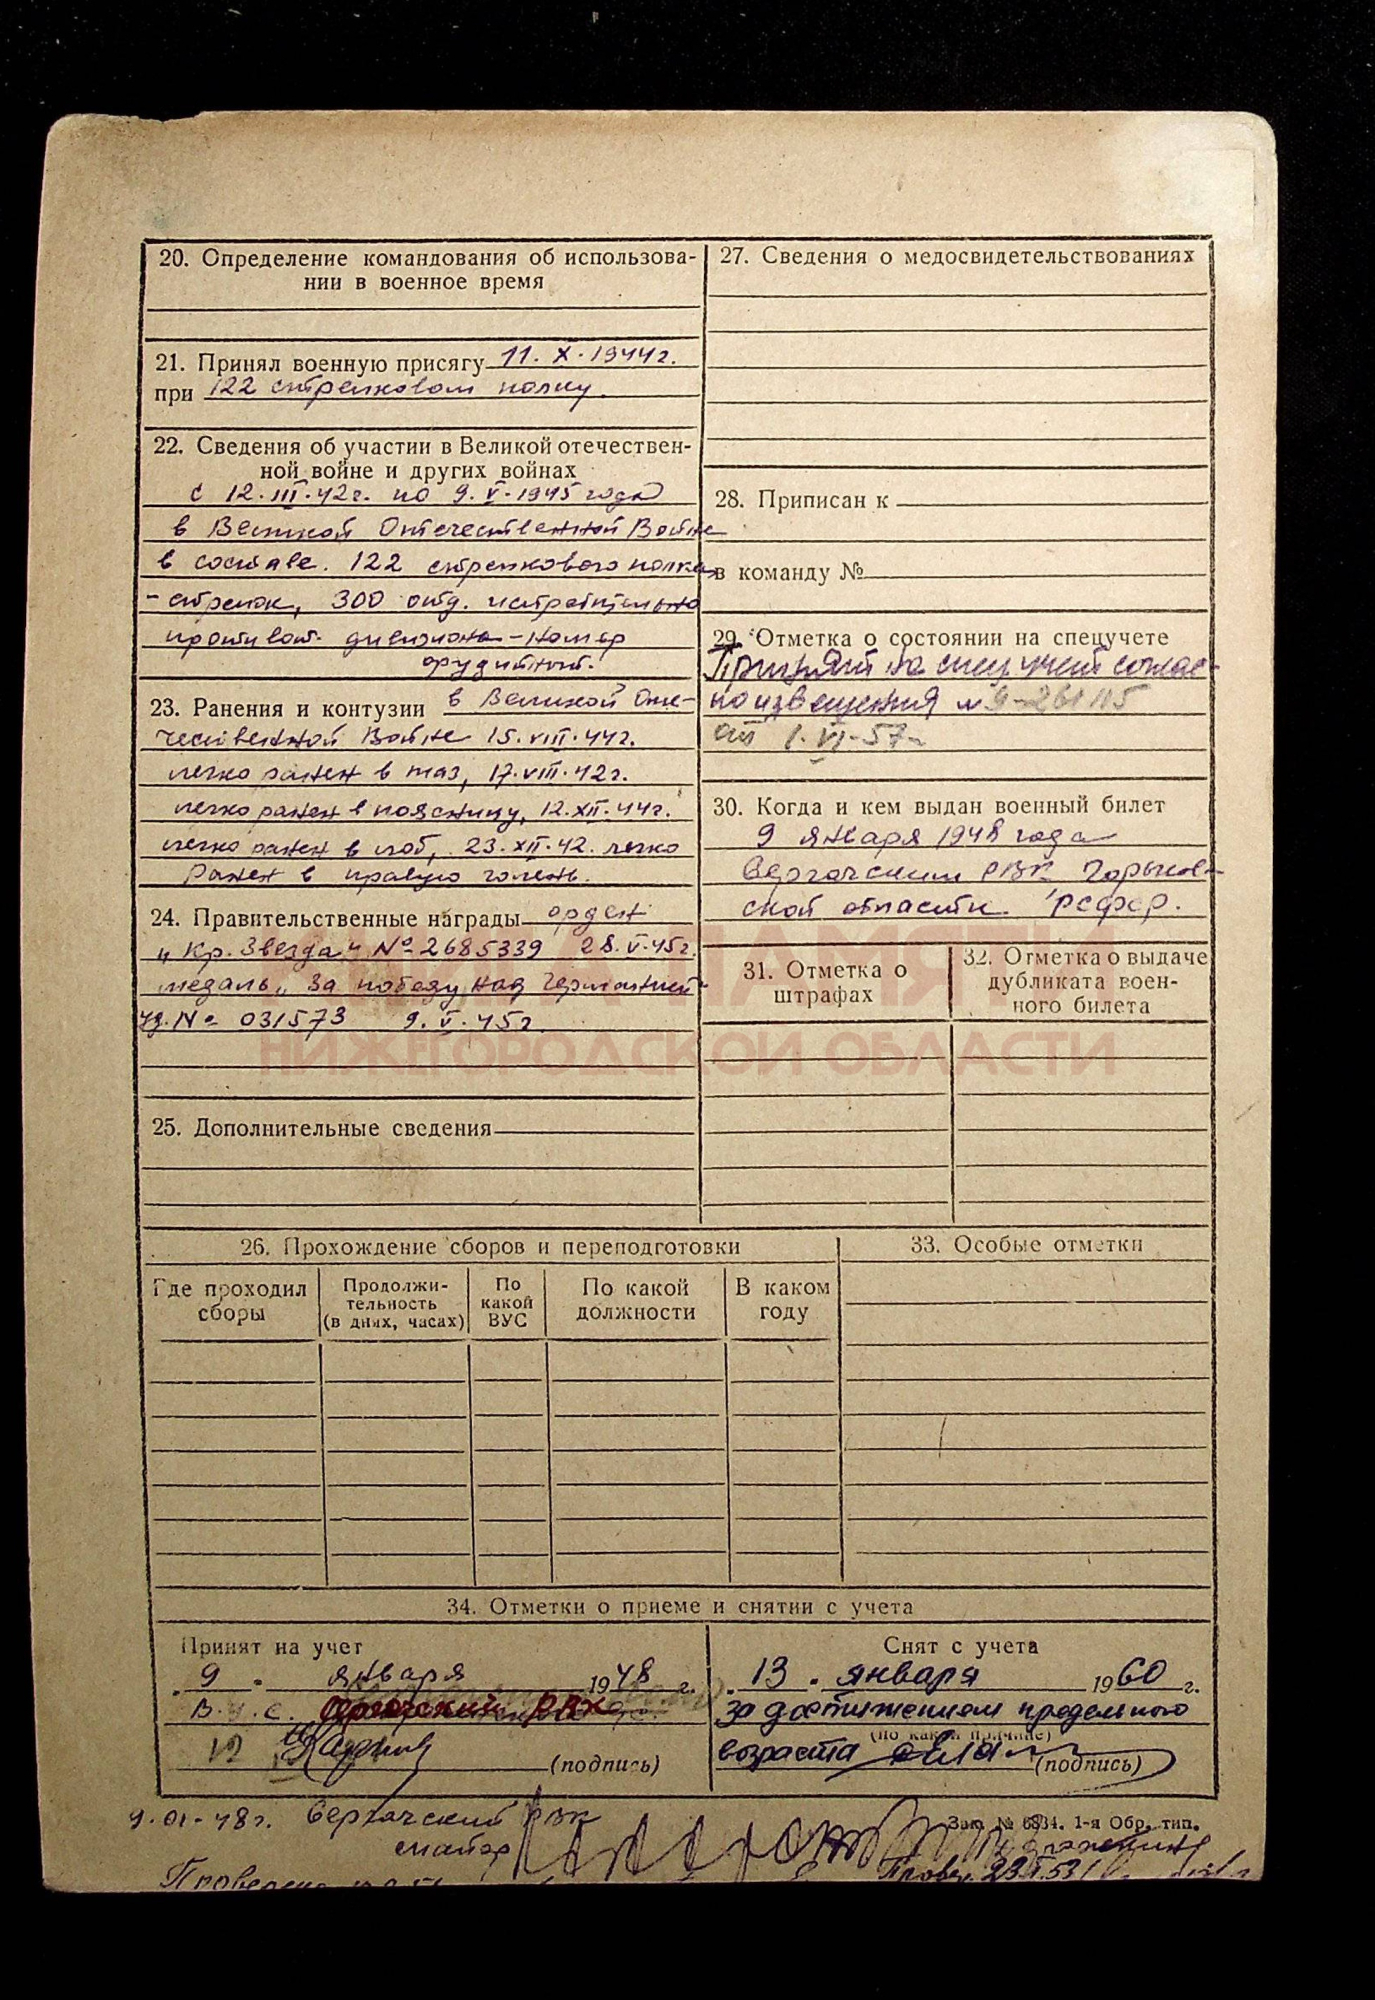 20. Определение командования об использова-
нии в военное время
21. Принял военную присягу 11. X. 1944г.
при 122 стрелковом полку.
22. Сведения об участии в Великой отечествен-
ной войне и других войнах
с 12. III. 42г. по 9. V. 1945 года
в Великой Отечественной Войне
в составе. 122 стрелкового полка
- стрелок, 300 отд. истребительно
противот. дивизиона - номер
орудийный.
23. Ранения и контузии в Великой Оте-
чественной Войне 15. VIII. 44г.
легко ранен в таз, 17. VIII. 42г.
легко ранен в поясницу, 12. XII. 44г.
легко ранен в лоб, 23. XII. 42. легко
Ранен в правую голень.
24. Правительственные награды орден
„Кр. Звезда" № 2685339 28. V. 45г.
медаль „За победу над Германией"
уд. № 031573 9. V. 45г.
25. Дополнительные сведения
27. Сведения о медосвидетельствованиях
28. Приписан к
в команду №
29. Отметка о состоянии на спецучете
Принят на спец учет соглас-
но извещения № 9-261115
от 1. VI - 57г
30. Когда и кем выдан военный билет
9 января 1948 года
Сергачским РВК Горьков-
ской области. РСФСР.
31. Отметка о
штрафах
32. Отметка о выдаче
дубликата воен-
ного билета
КНИГА ПАМЯТИ
НИЖЕГОРОДСКОЙ ОБЛАСТИ
26. Прохождение сборов и переподготовки
Где проходил
сборы
Продолжи-
тельность
(в днях, часах)
По
какой
ВУС
По какой
должности
В каком
году
33. Особые отметки
34. Отметки о приеме и снятии с учета
Принят на учет
"9" января 1948 г.
В. У. С.
(подпись)
Снят с учета
"13" января 1960 г.
за достижением предельного
(по какой причине)
возраста
(подпись)
9. 01 - 48г. Сергачский РВК
майор
Зак. № 6834. 1-я Обр. тип.
Провер